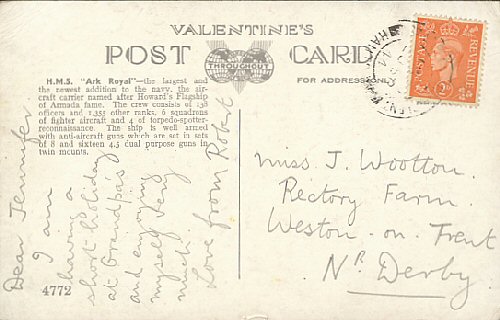 VALENTINE'S
POST CARD
THROUGHOUT
FOR ADDRESS ONLY
H.M.S. "Ark Royal"—the largest and
the newest addition to the navy, the air-
craft carrier named after Howard's Flagship
of Armada fame. The crew consists of 138
officers and 1,355 other ranks, 6 squadrons
of fighter aircraft and 4 of torpedo-spotter-
reconnaissance. The ship is well armed
with anti-aircraft guns which are set in sets
of 8 and sixteen 4.5 dual purpose guns in
twin mounts.
Dear Jennifer
I am
having a
short holiday
at Grandpa's
and enjoying
myself very
much.
Love from Robert
4772
REVENUE
Miss J. Wootton
Rectory Farm
Weston-on-Trent
Nr. Derby